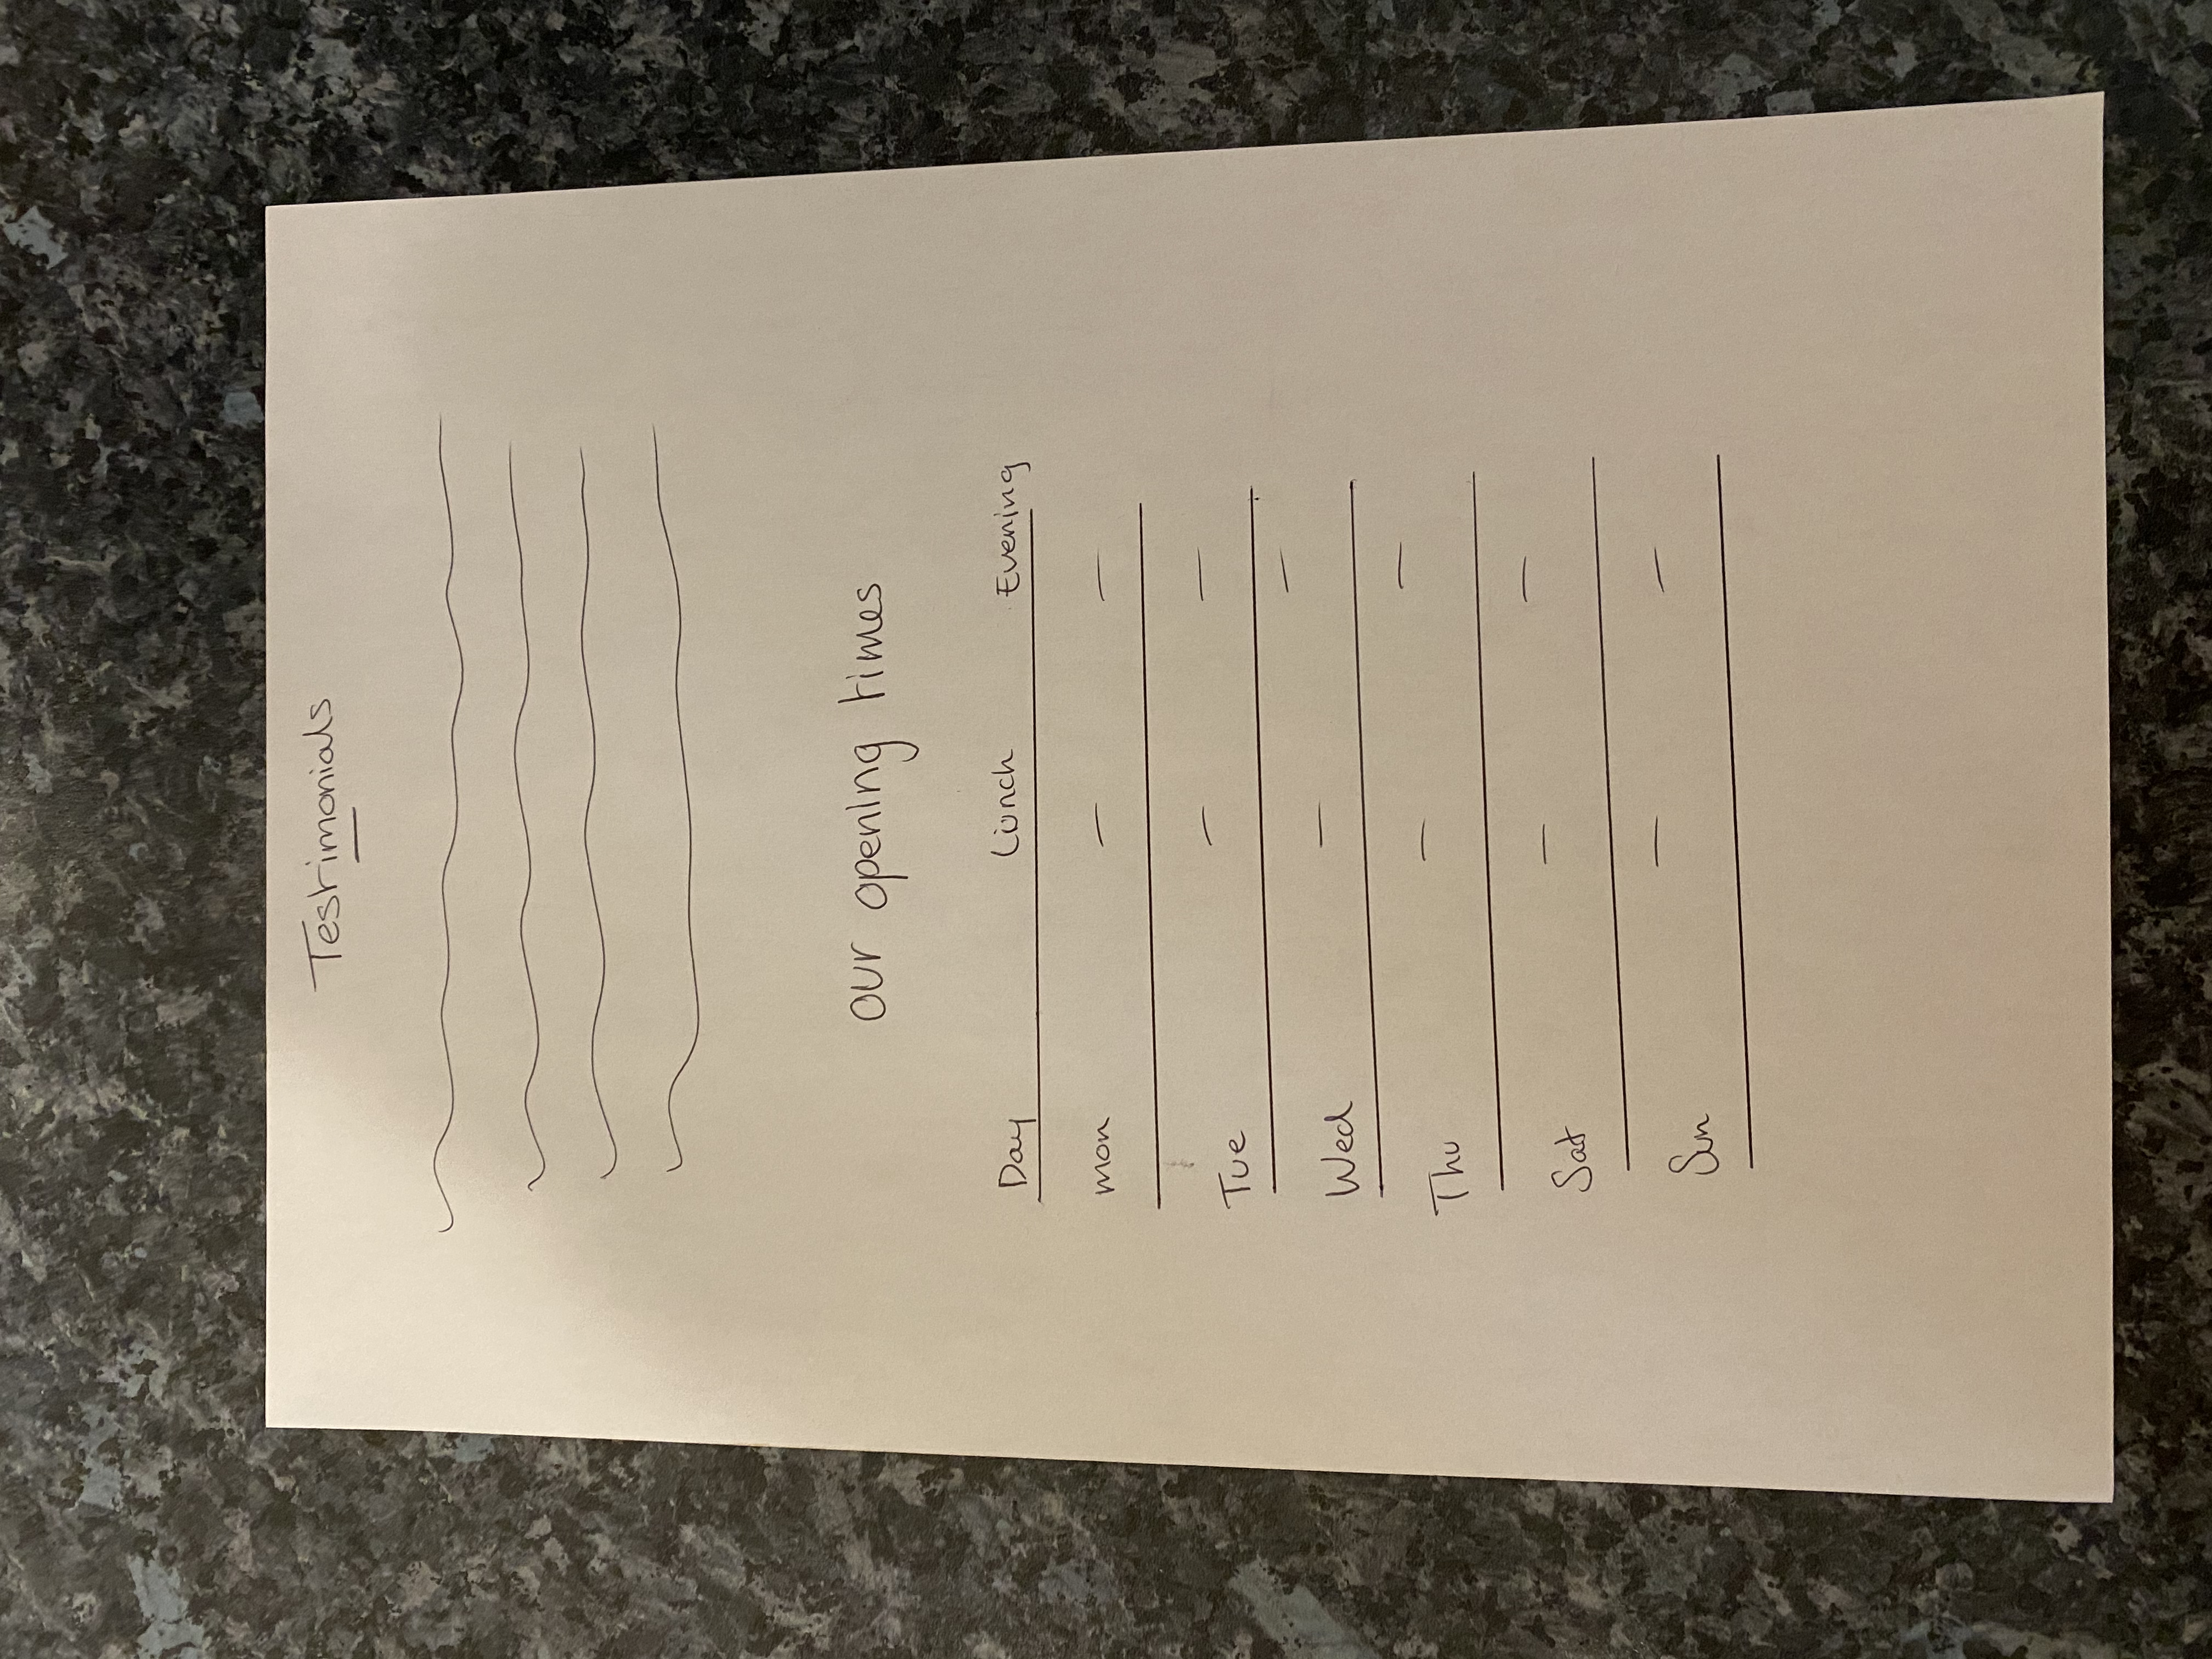 Testimonials
our opening times
Day Lunch Evening
mon — —
Tue — —
Wed — —
Thu — —
Sat — —
Sun — —